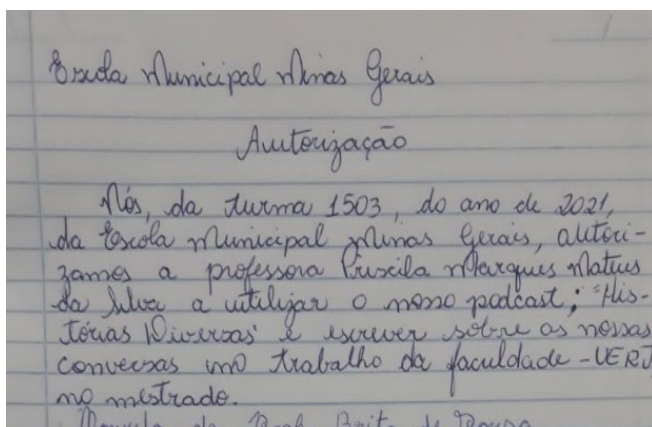 Escola Municipal Minas Gerais
Autorização
Nós, da turma 1503, do ano de 2021,
da Escola Municipal Minas Gerais, autori-
zamos a professora Priscila Marques Mateus
da Silva a utilizar o nosso podcast; "His-
tórias Diversas" e escrever sobre as nossas
conversas no trabalho da faculdade - UERJ
no mestrado.
Brito de